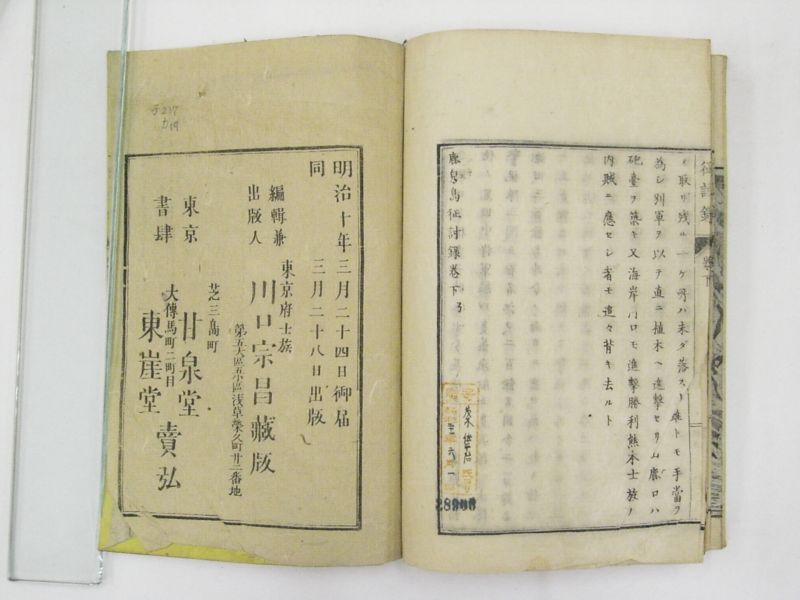 征討錄
卷下
ノ取リ残ル一ケ所ハ未ダ落スト雖トモ手當ヲ
為シ別軍ヲ以テ直ニ植木ヘ進撃セリ山鹿口ハ
砲臺ヲ築キ又海岸川口モ進撃勝利熊本士族ノ
内賊ニ應セシ者モ追々背キ去ルト
鹿兒島征討錄卷下
28906
明治十年三月二十四日御届
同 三月二十八日出版
編輯兼
出版人
東京府士族
川口宗昌藏版
第五大區五小區浅草榮久町廿二番地
東京
書肆
芝三島町
甘泉堂
大傳馬町二町目
東崖堂
賣弘